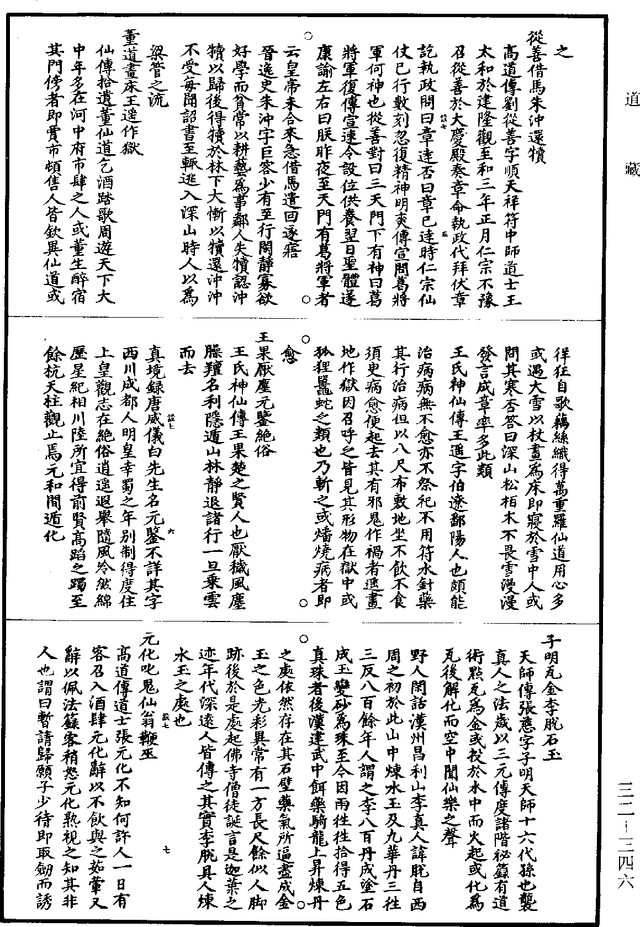 道藏
之
從善借馬朱沖還犢
高道傳劉從善字順天祥符中師道士王
太和於建隆觀至和三年正月仁宗不豫
召從善於大慶殿奏章命執政代拜伏章
訖執政問曰章達否曰章已達時仁宗仙
仗已行數刻忽復精神明爽傳宣問葛將
軍何神也從善對曰三天門下有神曰葛
將軍復傳宣速令設位供養翌日聖體遂
康諭左右曰朕昨夜至天門有葛將軍者
云皇帝未合來急借馬遣回遂寤
晉逸史朱沖字巨容少有至行閑靜寡欲
好學而貧常以耕藝為事鄰人失犢認沖
犢以歸後得犢於林下大慚以犢還沖沖
不受每聞詔書至輒逃入深山時人以為
梁管之流
董道畫床王遥作獄
仙傳拾遺董仙道乞酒踏歌周遊天下大
中年多在河中府市肆之人或董生醉宿
其門傍者即貴市頓售人皆欽異仙道或
佯狂自歌藕絲纖得萬重羅仙道用心多
或遇大雪以杖畫為床即寢於雪中人或
問其寒否答曰深山松栢木不畏雪漫漫
發言成章率多此類
王氏神仙傳王遥字伯遼鄱陽人也頗能
治病病無不愈亦不祭祀不用符水針藥
其行治病但以八尺布敷地坐不飲不食
須臾病愈便起去其有邪鬼作禍者遥畫
地作獄因召呼之皆見其形物在獄中或
狐狸鼉蛇之類也乃斬之或燔燒病者即
愈
王果厭塵元鑒絶俗
王氏神仙傳王果楚之賢人也厭穢風塵
臊羶名利隱遁山林靜退諸行一旦乘雲
而去
真境録唐威儀白先生名元鑒不詳其字
西川成都人明皇幸蜀之年別制得度住
上皇觀志在絶俗逍遥遐舉隨風泠然綿
歷星紀相川陸所宜得前賢高蹈之躅至
餘杭天柱觀止焉元和間遁化
子明瓦金李脫石玉
天師傳張慈字子明天師十六代孫也襲
真人之法歲以三元傳度諸階祕籙有道
術點瓦為金或投於水中而火起或化為
瓦後解化而空中聞仙樂之聲
野人閑話漢州昌利山李真人諱脫自西
周之初於此山中煉水玉及九華丹三往
三反八百餘年人謂之李八百丹成塗石
成玉變砂為珠至今因雨往往拾得五色
真珠者後漢建武中餌藥騎龍上昇煉丹
之處依然存在其石壁藥氣所逼盡成金
玉之色光彩異常有一方長尺餘似人脚
跡後於是處起佛寺僧徒誕言是迦葉之
迹年代深遠人皆傳之其實李脫真人煉
水玉之處也
元化叱鬼仙翁鞭巫
高道傳道士張元化不知何許人一日有
客召入酒肆元化辭以不飲與之茹葷又
辭以佩法籙客稍怒元化熟視之知其非
人也謂曰暫請歸願子少待即取劒而誘
三二—三四六